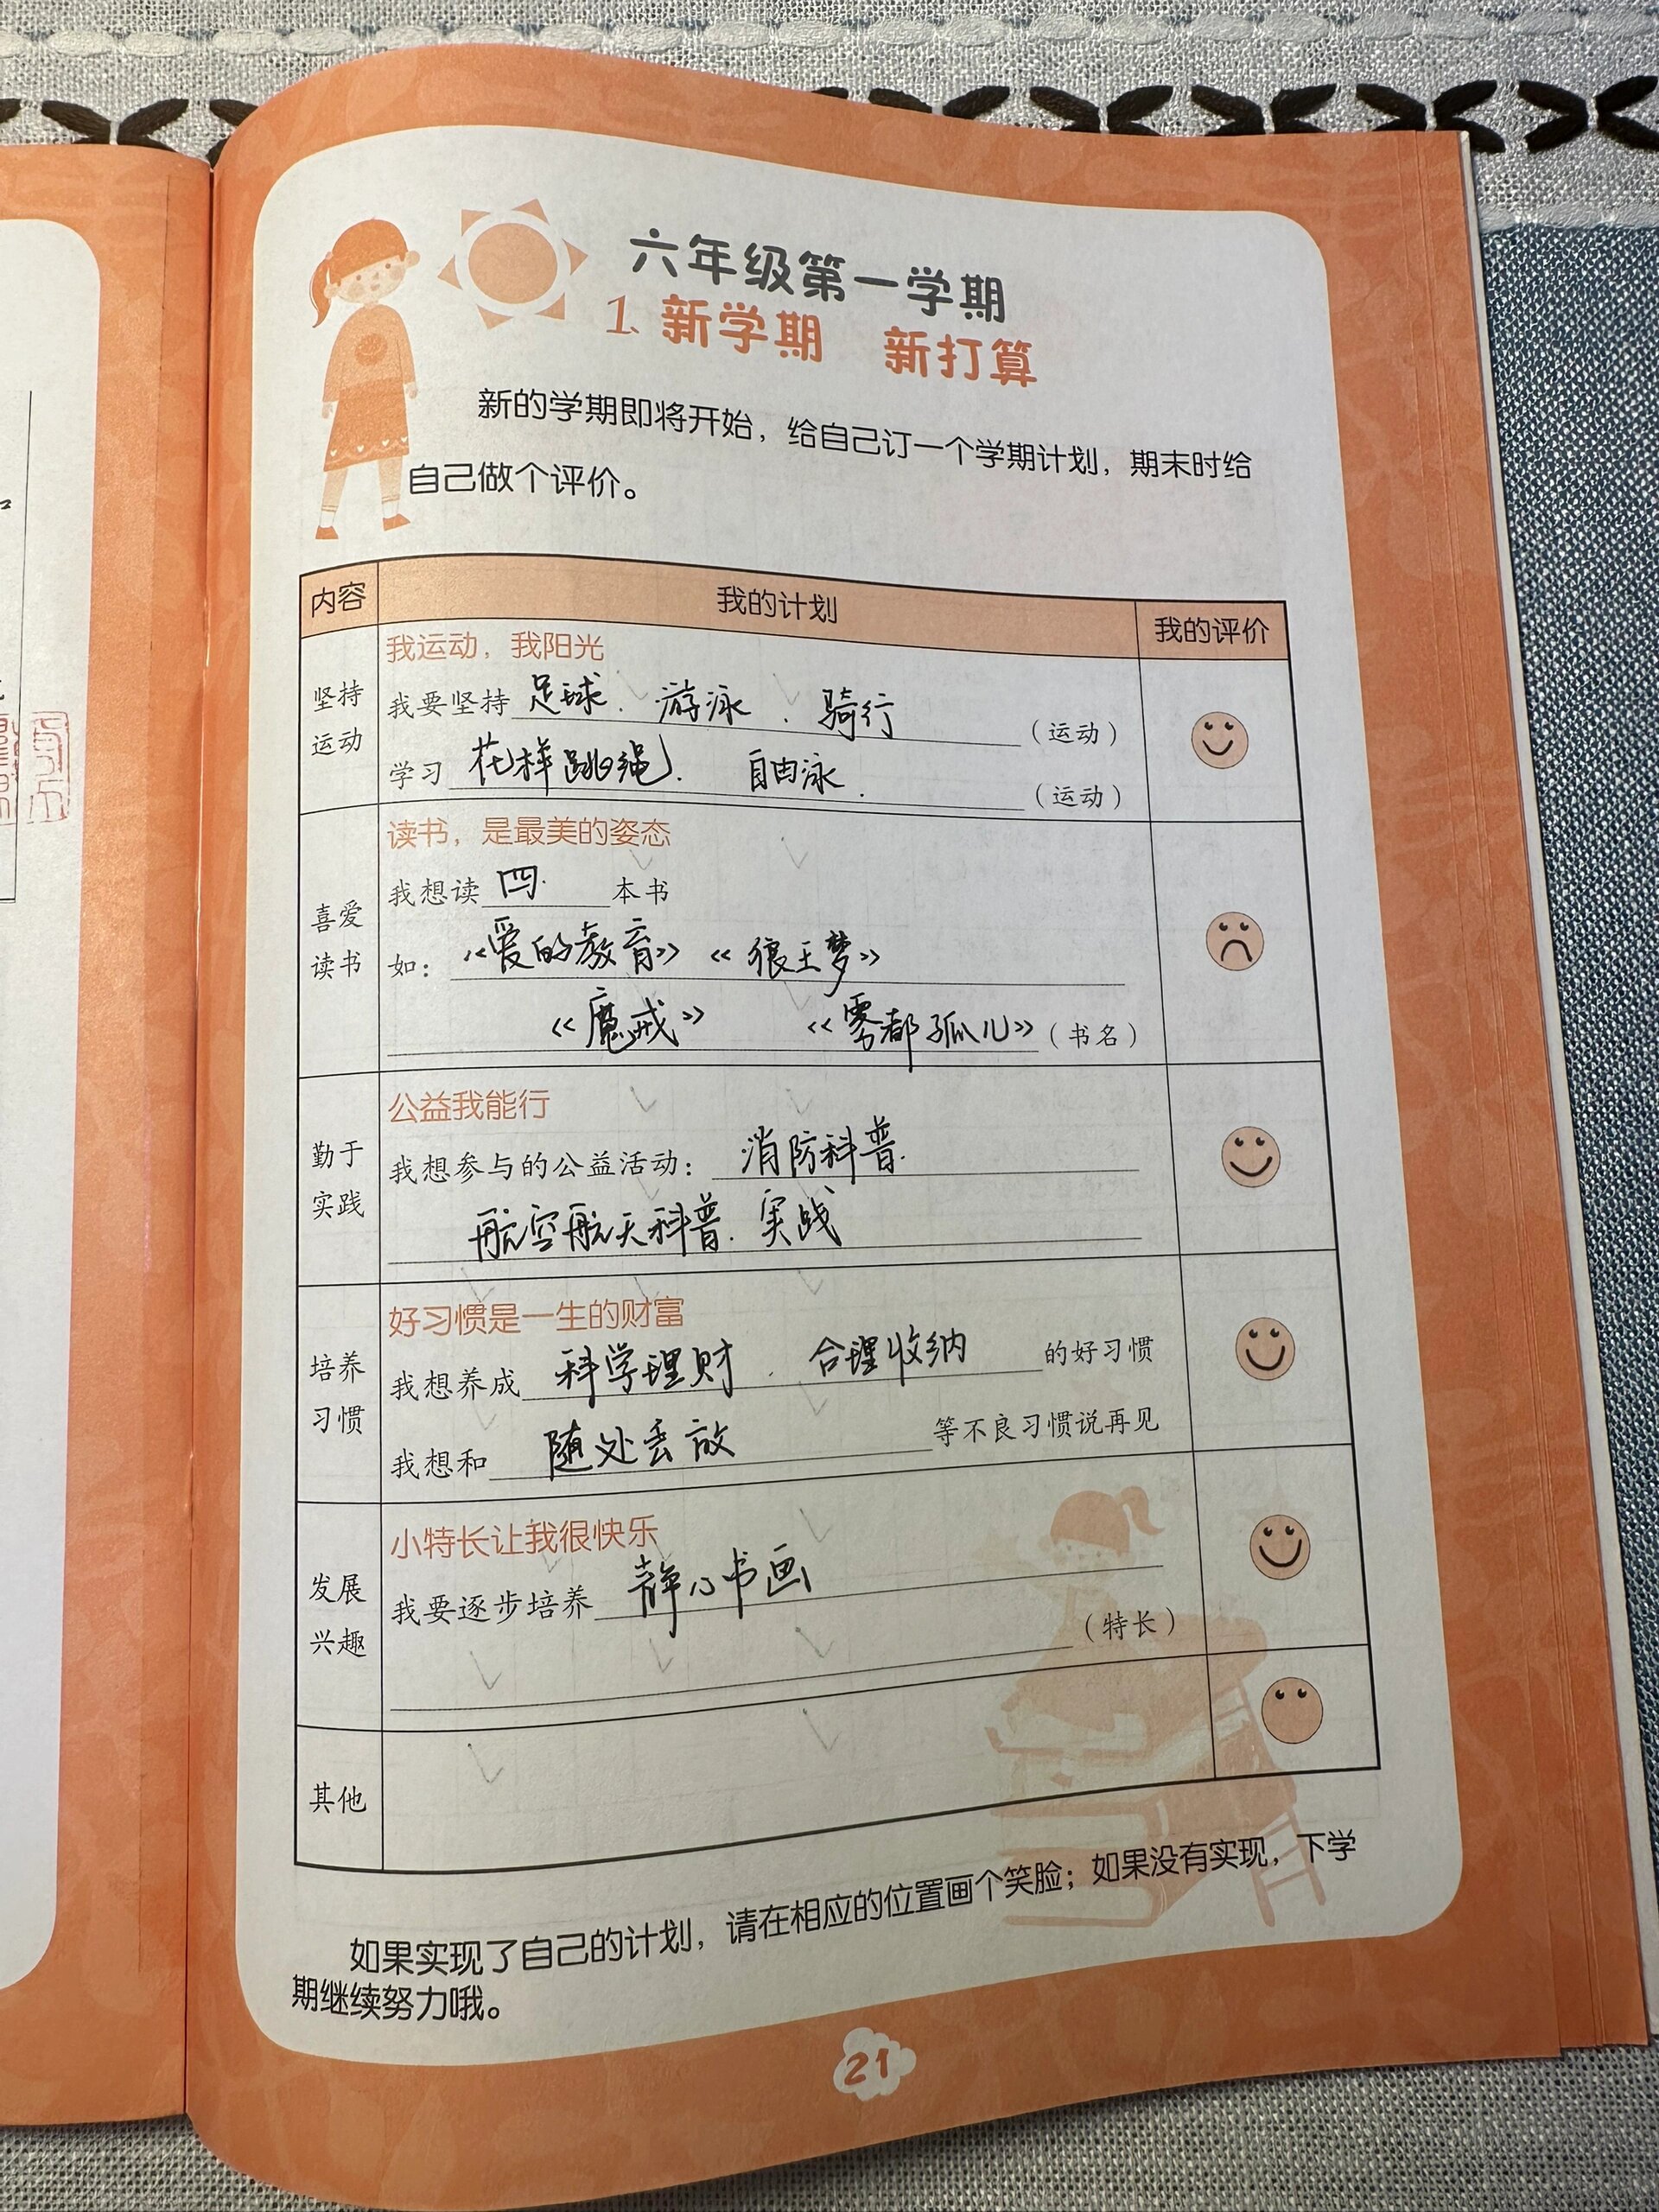 六年级第一学期
1、新学期 新打算
新的学期即将开始，给自己订一个学期计划，期末时给
自己做个评价。
内容 我的计划 我的评价
坚持
运动
我运动，我阳光
我要坚持 足球、游泳、骑行 （运动）
学习 花样跳绳、自由泳. （运动）
喜爱
读书
读书，是最美的姿态
我想读 四. 本书
如：《爱的教育》《狼王梦》
《魔戒》 《雾都孤儿》（书名）
勤于
实践
公益我能行
我想参与的公益活动： 消防科普.
航空航天科普. 实践
培养
习惯
好习惯是一生的财富
我想养成 科学理财、合理收纳 的好习惯
我想和 随处丢放 等不良习惯说再见
发展
兴趣
小特长让我很快乐
我要逐步培养 静心书画
（特长）
其他
如果实现了自己的计划，请在相应的位置画个笑脸；如果没有实现，下学
期继续努力哦。
21